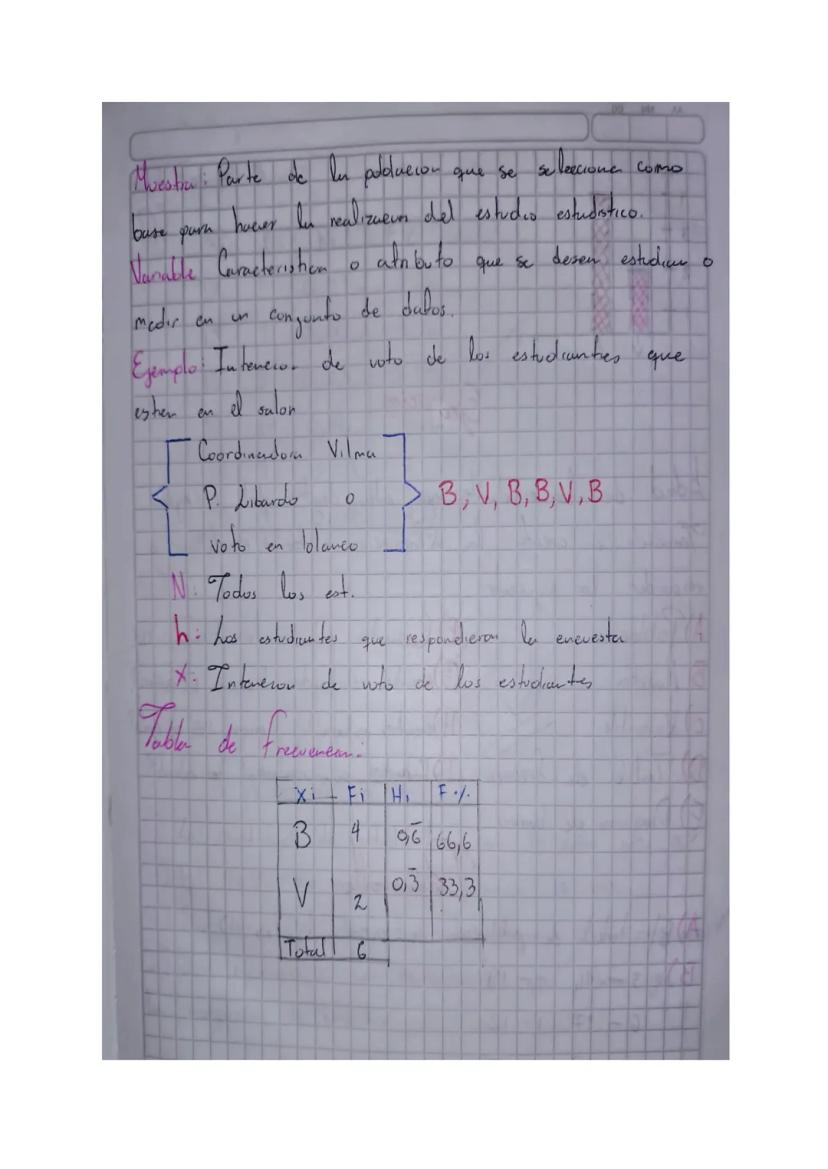 Muestra: Parte de la poblacion que se selecciona como
base para hacer la realizacion del estudio estadistico.
Variable Caracteristica o atributo que se desea estudiar o
medir en un conjunto de datos.
Ejemplo: Intencion de voto de los estudiantes que
esten en el salon
Coordinadora Vilma
P. Libardo o
voto en blanco
B, V, B, B, V, B
N: Todos los est.
h: Los estudiantes que respondieron la encuesta
X: Intencion de voto de los estudiantes
Tabla de frecuencia:
Xi Fi Hi F%
B 4 0,6̅ 66,6
V 2 0,3̅ 33,3
Total 6